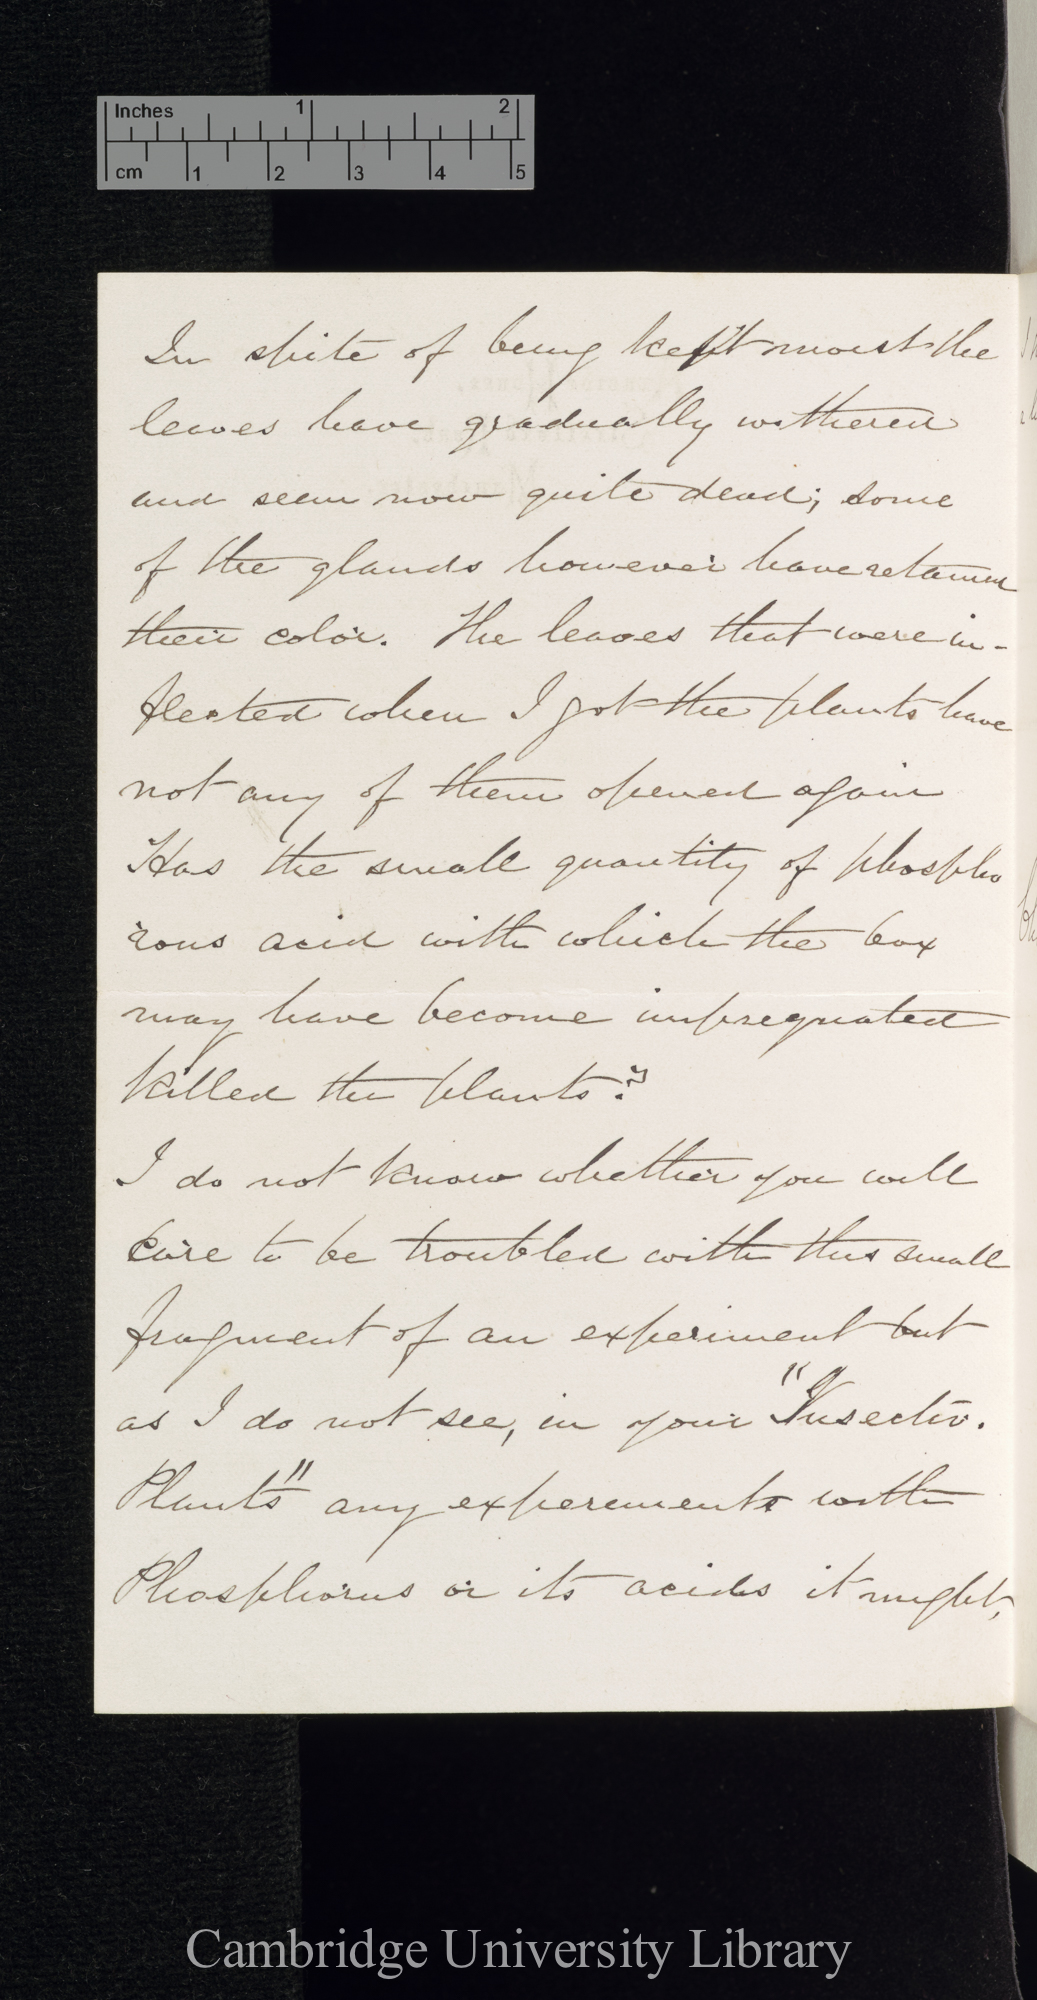 Inches 1 2
cm 1 2 3 4 5
In spite of being kept moist the
leaves have gradually withered
and seem now quite dead; some
of the glands however have retained
their color. The leaves that were in-
flected when I got the plants have
not any of them opened again
Has the small quantity of phospho
rous acid with which the box
may have become impregnated
killed the plants?
I do not know whether you will
care to be troubled with this small
fragment of an experiment but
as I do not see, in your "Insectiv.
Plants" any experiments with
Phosphorus or its acids it might,
Cambridge University Library